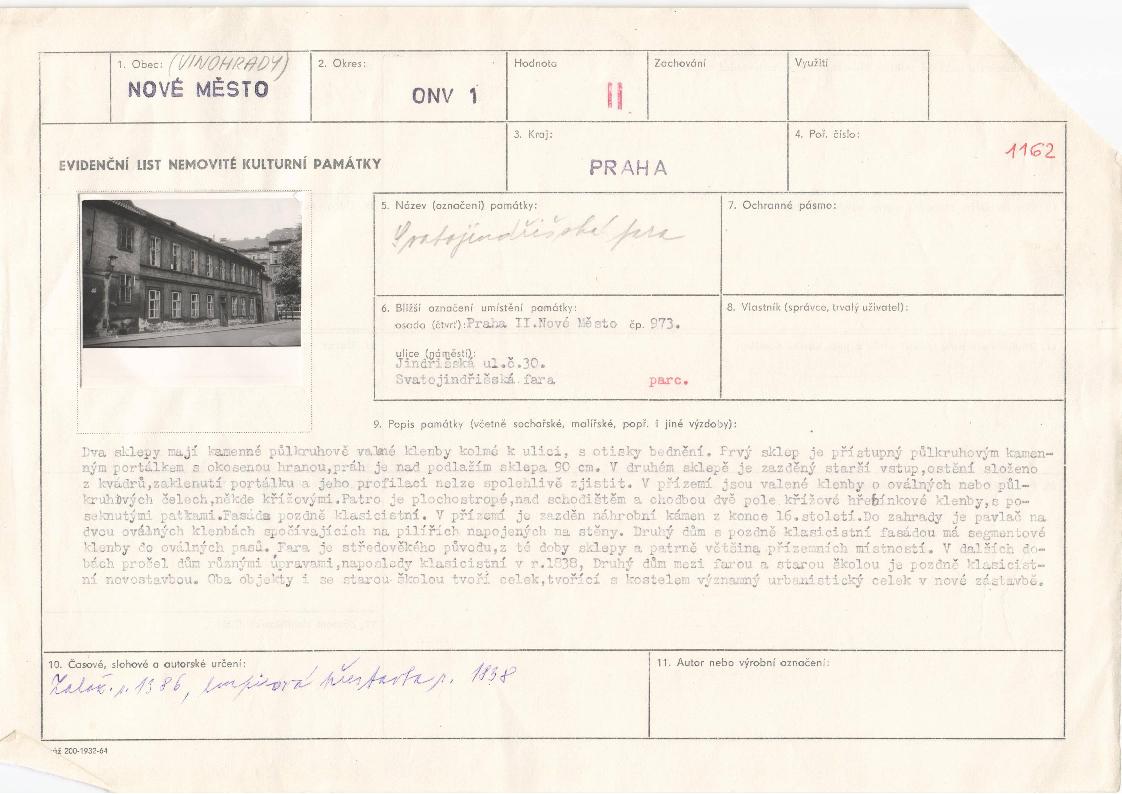 1. Obec: (VINOHRADY)
NOVÉ MĚSTO
2. Okres:
ONV 1
Hodnota
II
Zachování
Využití
EVIDENČNÍ LIST NEMOVITÉ KULTURNÍ PAMÁTKY
3. Kraj:
PRAHA
4. Poř. číslo:
1162
5. Název (označení) památky:
Svatojindřišská fara
7. Ochranné pásmo:
6. Bližší označení umístění památky:
osada (čtvrť):Praha II.Nové Město čp. 973.
ulice (náměstí):
Jindřišská ul.č.30.
Svatojindřišská fara parc.
8. Vlastník (správce, trvalý uživatel):
9. Popis památky (včetně sochařské, malířské, popř. i jiné výzdoby):
Dva sklepy mají kamenné půlkruhově valené klenby kolmé k ulici, s otisky bednění. Prvý sklep je přístupný půlkruhovým kamen-
ným portálkem s okosenou hranou,práh je nad podlažím sklepa 90 cm. V druhém sklepě je zazděný starší vstup,ostění složeno
z kvádrů,zaklenutí portálku a jeho profilaci nelze spolehlivě zjistit. V přízemí jsou valené klenby o oválných nebo půl-
kruhových čelech,někde křížovými.Patro je plochostropé,nad schodištěm a chodbou dvě pole křížové hřebínkové klenby,s po-
seknutými patkami.Fasáda pozdně klasicistní. V přízemí je zazděn náhrobní kámen z konce 16.století.Do zahrady je pavlač na
dvou oválných klenbách spočívajících na pilířích napojených na stěny. Druhý dům s pozdně klasicistní fasádou má segmentové
klenby do oválných pasů. Fara je středověkého původu,z té doby sklepy a patrně většina přízemních místností. V dalších do-
bách prošel dům různými úpravami,naposledy klasicistní v r.1838, Druhý dům mezi farou a starou školou je pozdně klasicist-
ní novostavbou. Oba objekty i se starou školou tvoří celek,tvořící s kostelem významný urbanistický celek v nové zástavbě.
10. Časové, slohové a autorské určení:
Založ. r. 1386, empirová přestavba r. 1838
11. Autor nebo výrobní označení:
200-1932-64